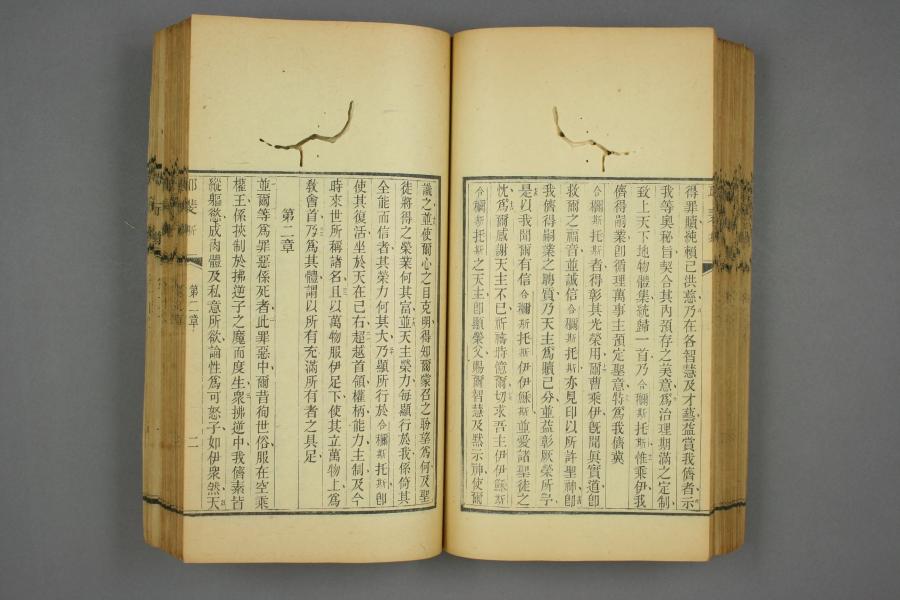 得罪贖純賴己洪慈乃在各智慧及才藝益賞我儕者示
我等奧秘旨契合其內預存之美意爲治理期滿之定制
致上天下地物體集統歸一首乃合彌斯托斯惟乘伊我
儕得嗣業卽循理萬事主預定聖意特爲我儕冀
合彌斯托斯者得彰其光榮用爾曹乘伊旣聞眞實道卽
救爾之福音並誠信合彌斯托斯亦見印以所許聖神卽
我儕得嗣業之聘質乃天主爲贖己分並益彰厥榮所予
是以我聞爾有信合彌斯托斯伊伊穌斯並愛諸聖徒之
忱爲爾感謝天主不已祈禱時憶爾切求吾主伊伊穌斯
合彌斯托斯之天主卽顯榮父賜爾智慧及默示神使爾
識之並使爾心之目克明得知爾蒙召之聆望爲何及聖
徒將得之榮業何其富並天主榮力每顯行於我係倚其
全能而信者其榮力何其大乃顯所行於合彌斯托斯卽
使其復活坐於天在己右超越首領權柄能力主制及今
時來世所稱諸名且以萬物服伊足下使其立萬物上爲
敎會首乃爲其體謂以所有充滿所有者之具足
第二章
並爾等爲罪惡係死者此罪惡中爾昔徇世俗服在空乘
權王係挾制於拂逆子之魔而度生衆拂逆中我儕素皆
縱軀慾成肉體及私意所欲論性爲可怒子如伊衆然天
第二章
二